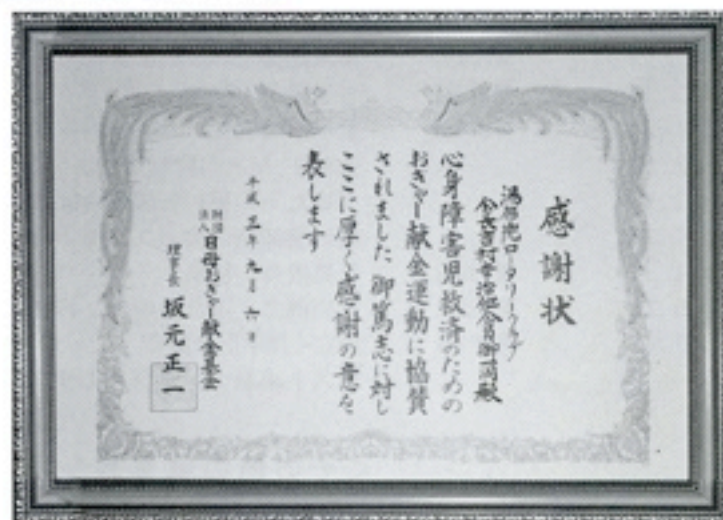 感謝状
ロータリークラブ
会長吉村 他会員御一同殿
心身障害児救済のための
おぎゃー献金運動に協賛
されました御篤志に対し
ここに厚く感謝の意を
表します
平成三年九月六日
財団法人日母おぎゃー献金基金
理事長 坂元正一